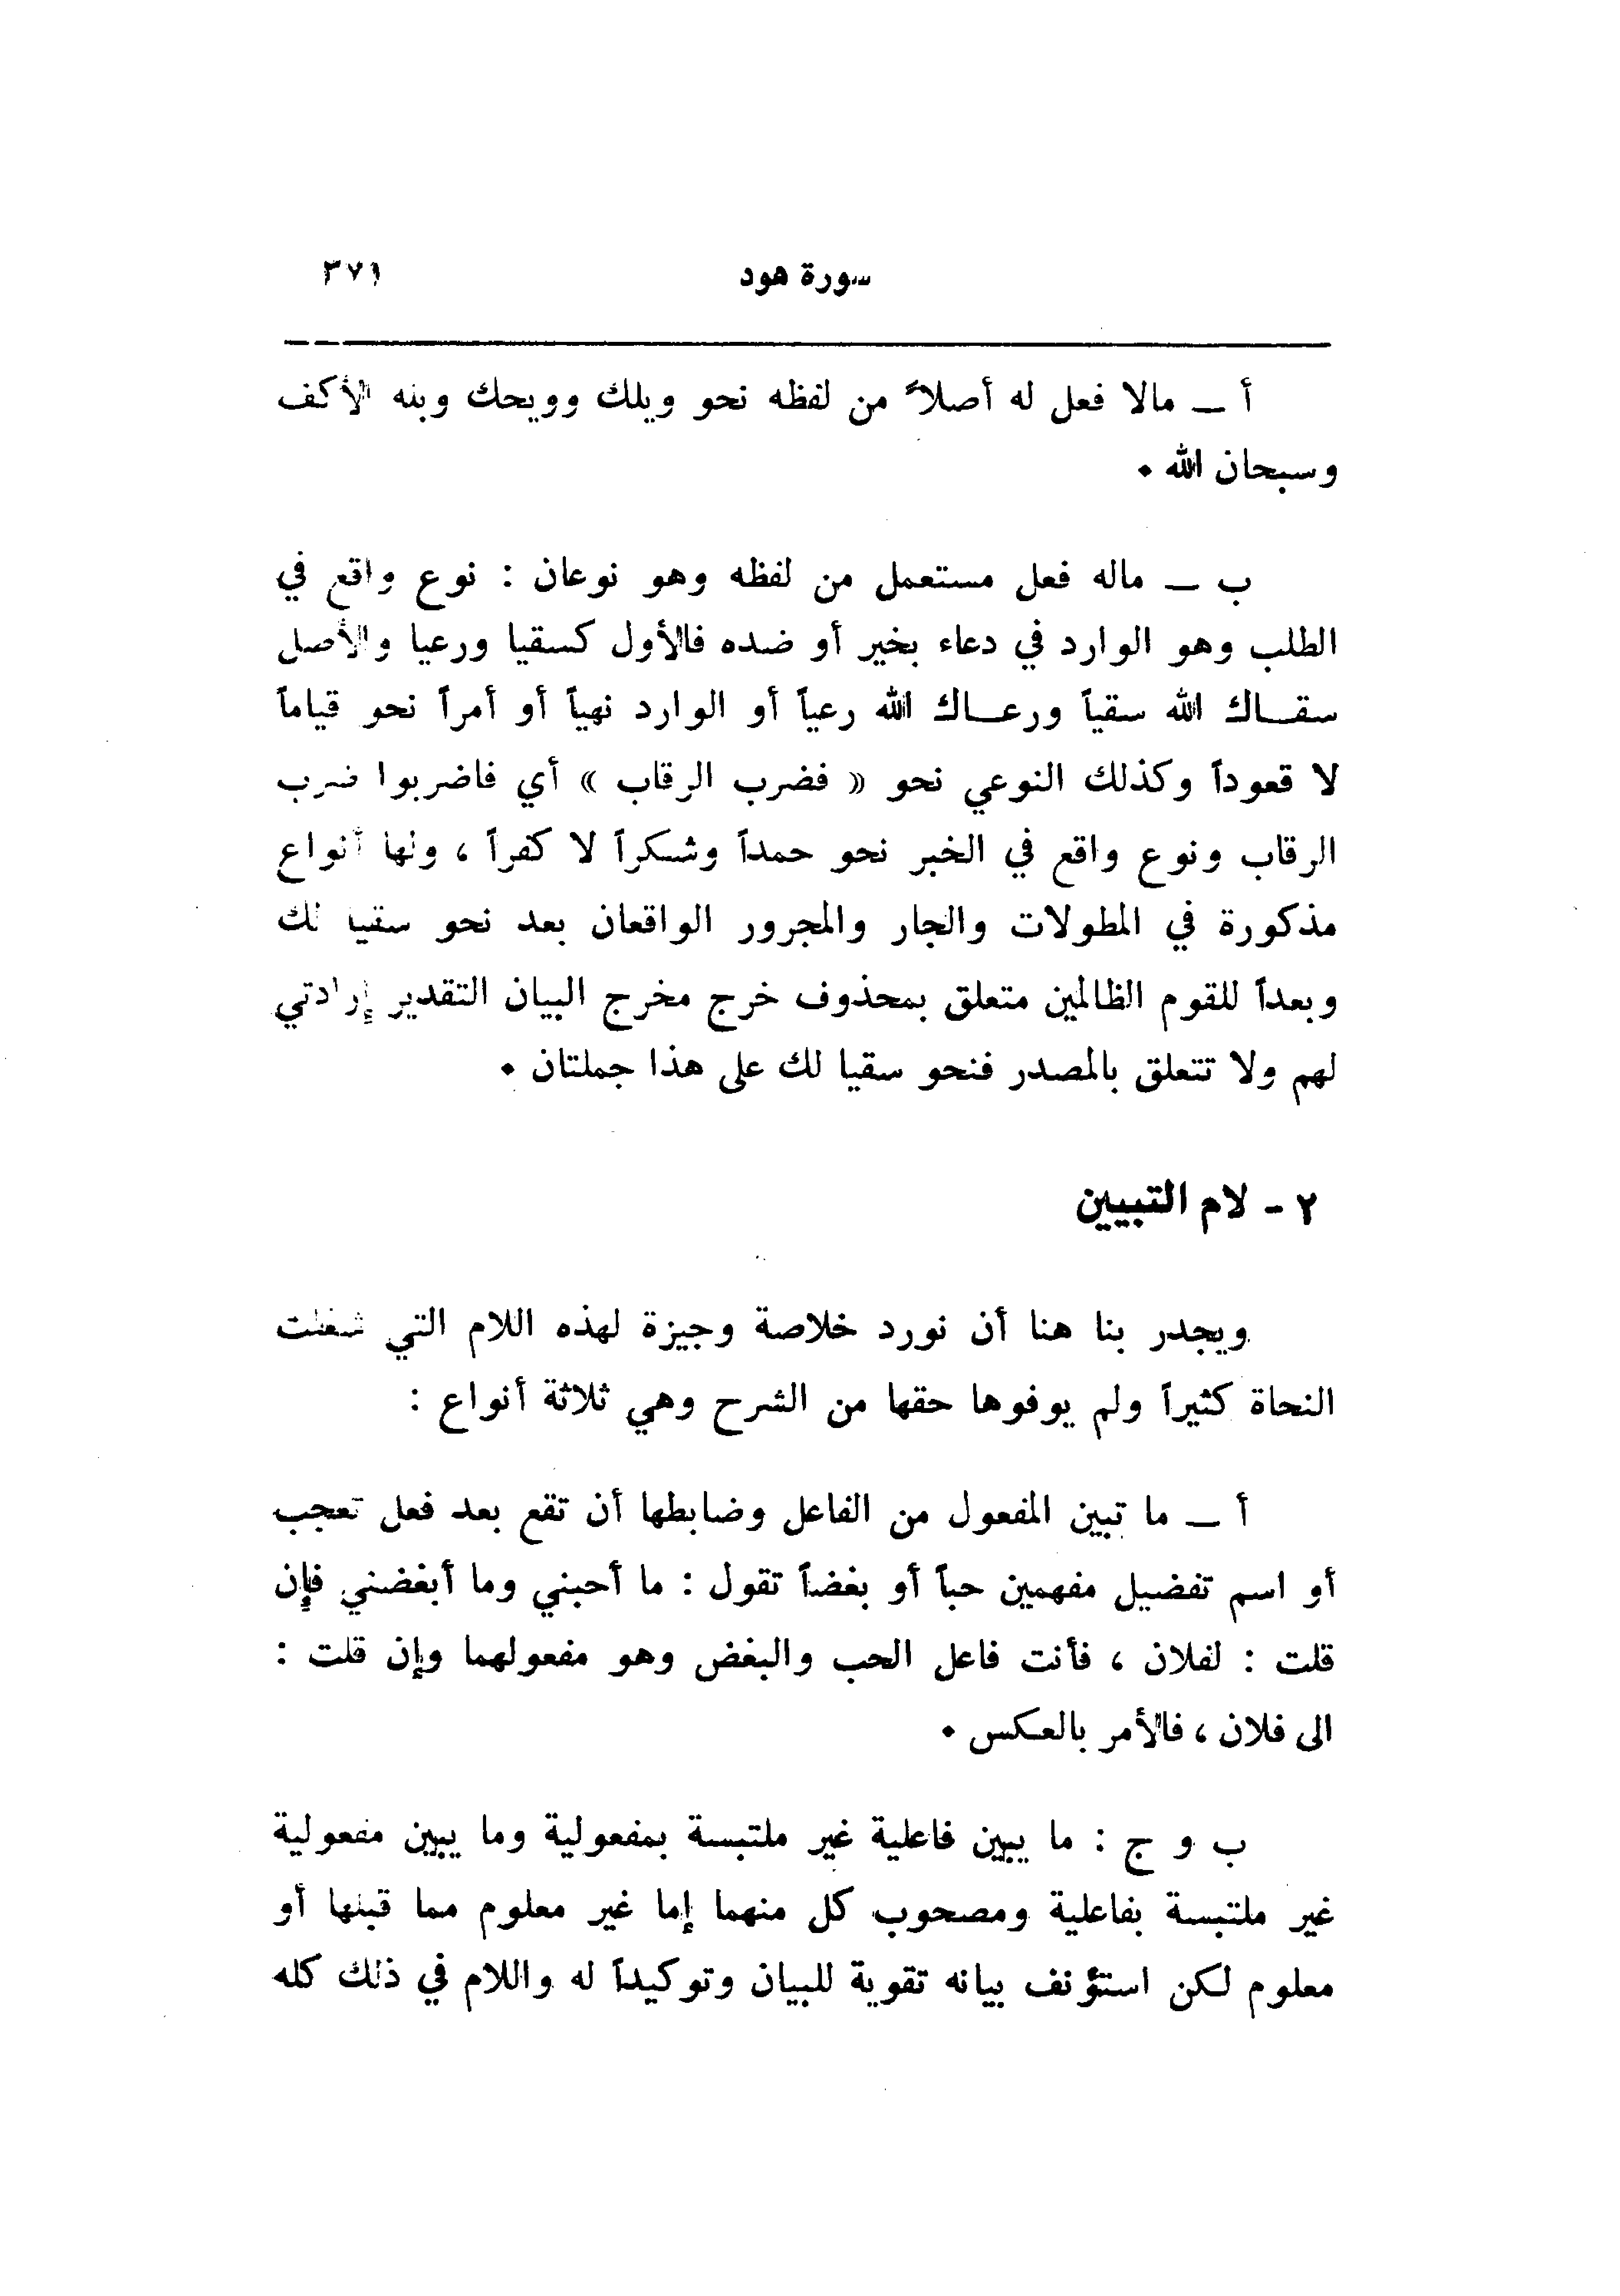 سورة هود ٣٧١
أ ــ مالا فعل له أصلاً من لفظه نحو ويلك وويحك وبله الأكف
وسبحان الله ٠
ب ــ ماله فعل مستعمل من لفظه وهو نوعان : نوع واقع في
الطلب وهو الوارد في دعاء بخير أو ضده فالأول كسقيا ورعيا والأصل
سقــاك الله سقياً ورعــاك الله رعياً أو الوارد نهياً أو أمراً نحو قياماً
لا قعوداً وكذلك النوعي نحو « فضرب الرقاب » أي فاضربوا ضرب
الرقاب ونوع واقع في الخبر نحو حمداً وشكراً لا كفراً ، ولها أنواع
مذكورة في المطولات والجار والمجرور الواقعان بعد نحو سقيا لك
وبعداً للقوم الظالمين متعلق بمحذوف خرج مخرج البيان التقدير إرادتي
لهم ولا تتعلق بالمصدر فنحو سقيا لك على هذا جملتان ٠
٢ - لام التبيين
ويجدر بنا هنا أن نورد خلاصة وجيزة لهذه اللام التي شغلت
النحاة كثيراً ولم يوفوها حقها من الشرح وهي ثلاثة أنواع :
أ ــ ما تبين المفعول من الفاعل وضابطها أن تقع بعد فعل تعجب
أو اسم تفضيل مفهمين حباً أو بغضاً تقول : ما أحبني وما أبغضني فإن
قلت : لفلان ، فأنت فاعل الحب والبغض وهو مفعولهما وإن قلت :
الى فلان ، فالأمر بالعكس ٠
ب و ج : ما يبين فاعلية غير ملتبسة بمفعولية وما يبين مفعولية
غير ملتبسة بفاعلية ومصحوب كل منهما إما غير معلوم مما قبلها أو
معلوم لكن استؤنف بيانه تقوية للبيان وتوكيداً له واللام في ذلك كله